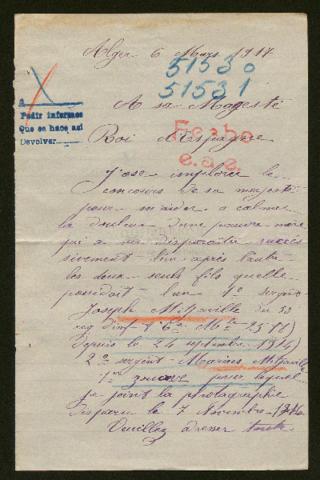 Alger 6 Mars 1917
51530
51531
A
Pedir informes
Que se hace, así
Devolver
A sa Magesté
Roi d'Espagne
Fecho
e.a.e.
J'ose implorer le
concours de sa majesté
pour m'aider a calmer
la douleur d'une pauvre mère
qui a vu disparaitre succes
sivement l'un après l'autre
les deux seuls fils quelle
possédait l'un 1º sergent
Joseph Mifsaville du 53
reg d'inf t 6e Mle 2516)
depuis le 24 septembre 1914)
2º sergent Marius Mifsaville
1er zouave pour lequel
je joint la photographie
disparu le 7 Novembre 1914
Veuillez adresser toute